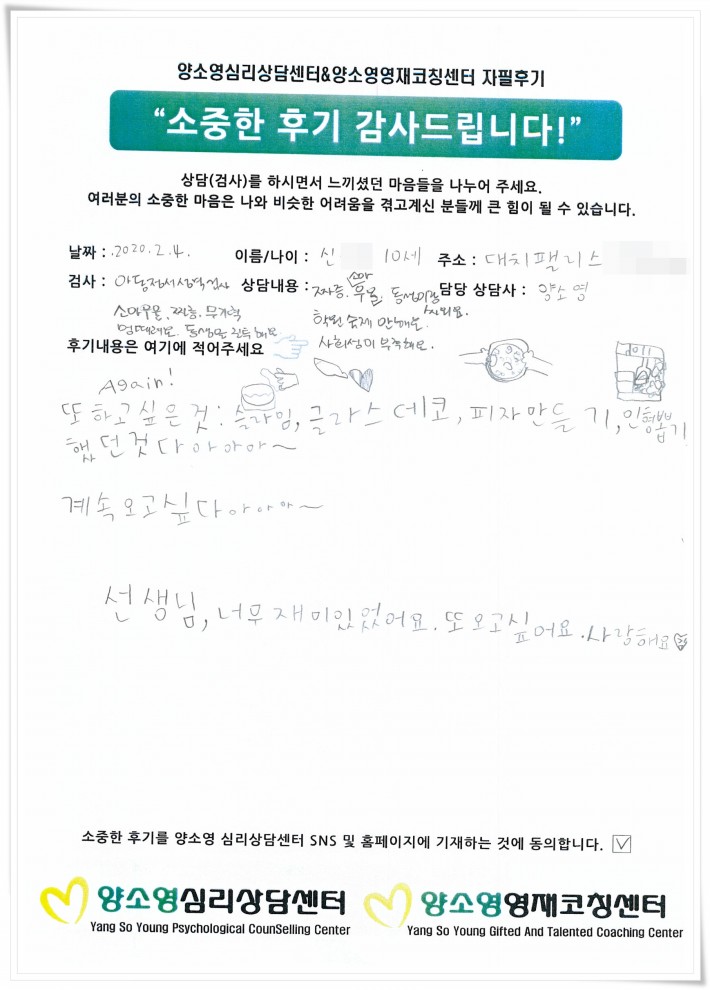 양소영심리상담센터&양소영영재코칭센터 자필후기
“소중한 후기 감사드립니다!”
상담(검사)를 하시면서 느끼셨던 마음들을 나누어 주세요.
여러분의 소중한 마음은 나와 비슷한 어려움을 겪고계신 분들께 큰 힘이 될 수 있습니다.
날짜 : 2020.2.4. 이름/나이 : 신 10세 주소 : 대치팰리스
검사 : 아동정서심리검사 상담내용 : 짜증, 소아우울, 동생이랑 싸워요. 담당 상담사 : 양소영
소아우울, 짜증, 무기력 학원 숙제 안해요
멍때려요. 동생만 질투해요. 사회성이 부족해요.
후기내용은 여기에 적어주세요
Again!
또 하고싶은것 : 슬라임, 글라스데코, 피자만들기, 인형뽑기
했던것 다아아아~
계속오고싶다아아아~
선생님, 너무재미있었어요. 또오고싶어요. 사랑해요
소중한 후기를 양소영 심리상담센터 SNS 및 홈페이지에 기재하는 것에 동의합니다.
양소영심리상담센터 양소영영재코칭센터
Yang So Young Psychological CounSelling Center Yang So Young Gifted And Talented Coaching Center